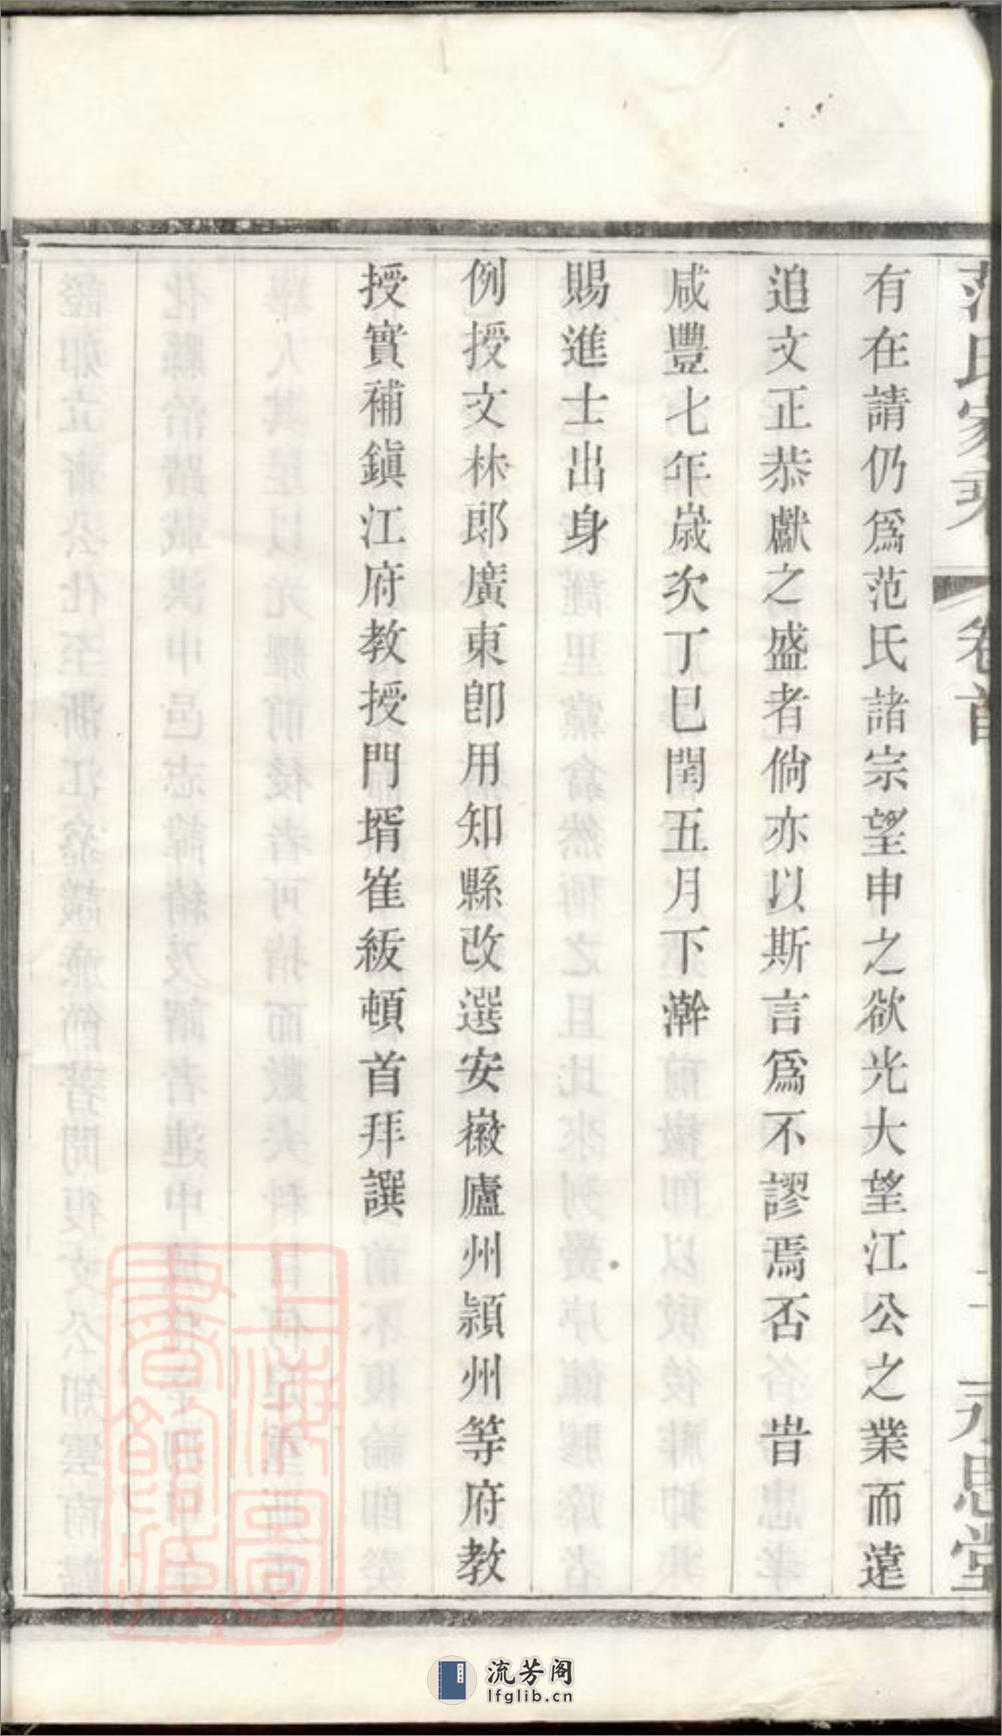 范氏家乘 卷首 十一 永思堂
有在請仍爲范氏諸宗望申之欲光大望江公之業而遠
追文正恭獻之盛者倘亦以斯言爲不謬焉否 旹
咸豐七年歲次丁巳閏五月下澣
賜進士出身
例授文林郎廣東卽用知縣改選安徽廬州潁州等府教
授實補鎭江府教授門壻崔紱頓首拜譔
上海圖書館藏
流芳阁
lfglib.cn